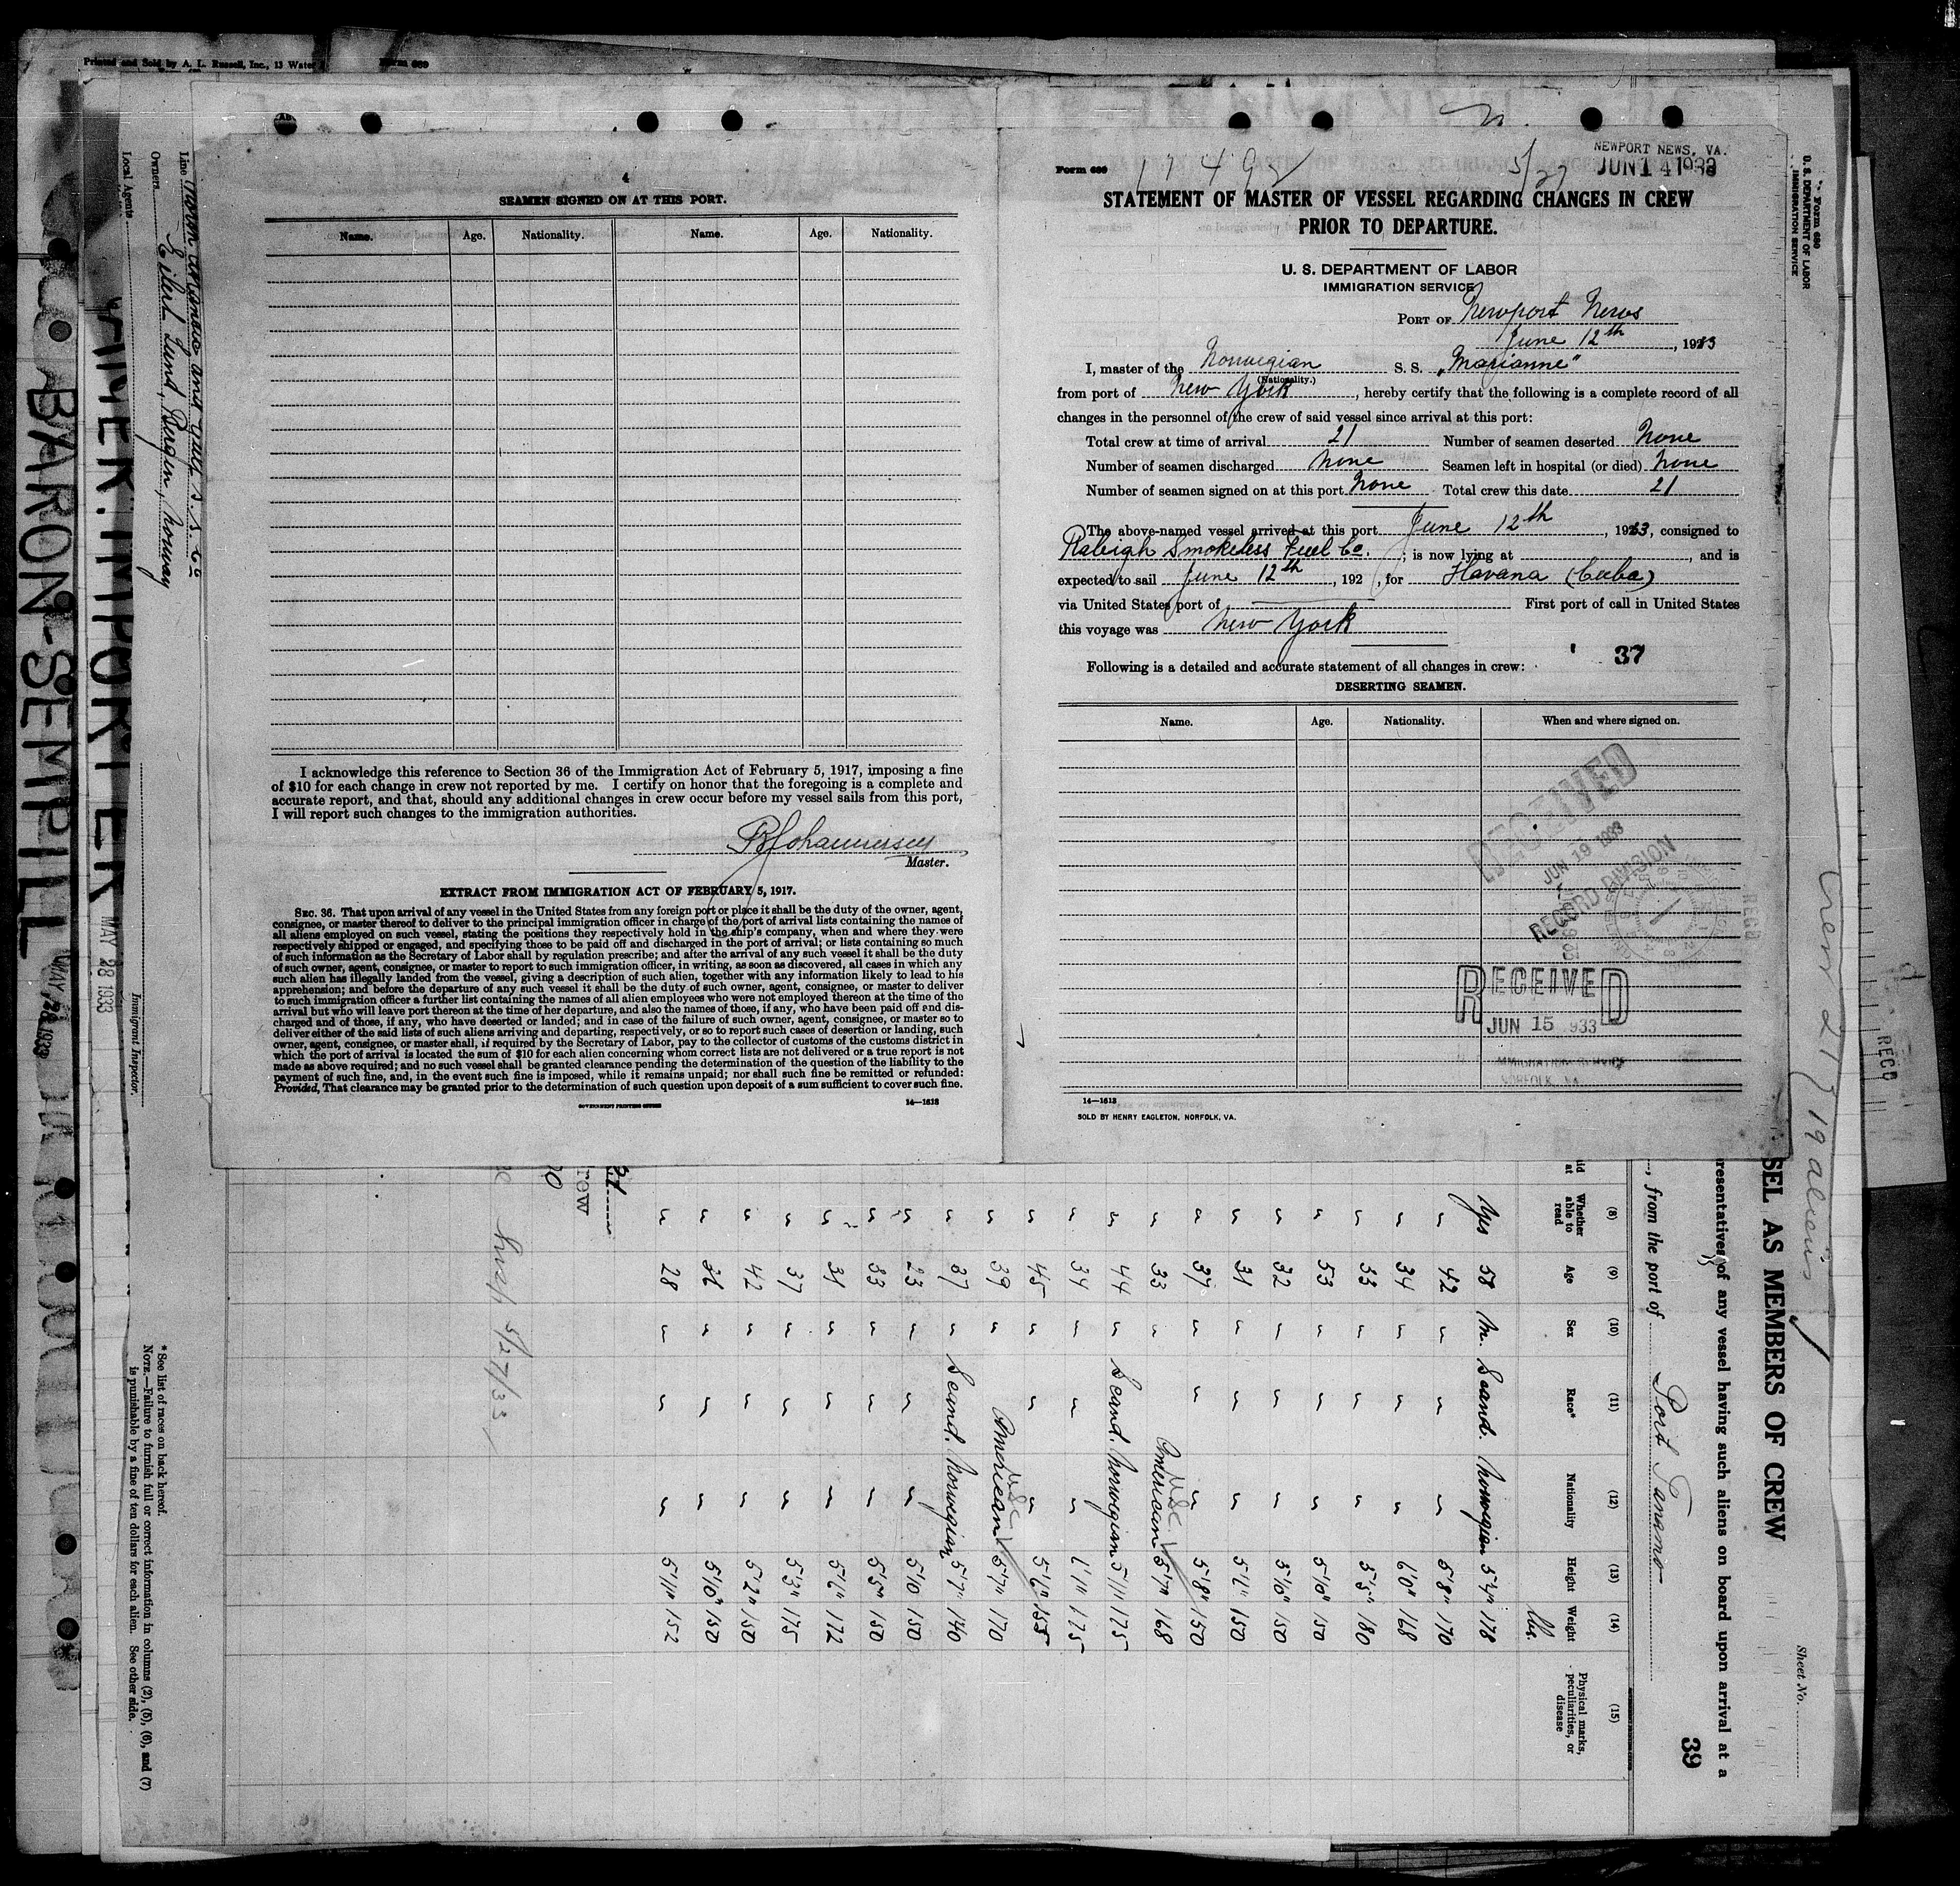 Printed and Sold by A. L. Russell, Inc., 13 Water
Form 689
4
SEAMEN SIGNED ON AT THIS PORT.
Name. Age. Nationality. Name. Age. Nationality.
I acknowledge this reference to Section 36 of the Immigration Act of February 5, 1917, imposing a fine
of $10 for each change in crew not reported by me. I certify on honor that the foregoing is a complete and
accurate report, and that, should any additional changes in crew occur before my vessel sails from this port,
I will report such changes to the immigration authorities.
Johannessen
Master.
EXTRACT FROM IMMIGRATION ACT OF FEBRUARY 5, 1917.
SEC. 36. That upon arrival of any vessel in the United States from any foreign port or place it shall be the duty of the owner, agent,
consignee, or master thereof to deliver to the principal immigration officer in charge of the port of arrival lists containing the names of
all aliens employed on such vessel, stating the positions they respectively hold in the ship's company, when and where they were
respectively shipped or engaged, and specifying those to be paid off and discharged in the port of arrival; or lists containing so much
of such information as the Secretary of Labor shall by regulation prescribe; and after the arrival of any such vessel it shall be the duty
of such owner, agent, consignee, or master to report to such immigration officer, in writing, as soon as discovered, all cases in which any
such alien has illegally landed from the vessel, giving a description of such alien, together with any information likely to lead to his
apprehension; and before the departure of any such vessel it shall be the duty of such owner, agent, consignee, or master to deliver
to such immigration officer a further list containing the names of all alien employees who were not employed thereon at the time of the
arrival but who will leave port thereon at the time of her departure, and also the names of those, if any, who have been paid off and dis-
charged and of those, if any, who have deserted or landed; and in case of the failure of such owner, agent, consignee, or master so to
deliver either of the said lists of such aliens arriving and departing, respectively, or so to report such cases of desertion or landing, such
owner, agent, consignee, or master shall, if required by the Secretary of Labor, pay to the collector of customs of the customs district in
which the port of arrival is located the sum of $10 for each alien concerning whom correct lists are not delivered or a true report is not
made as above required; and no such vessel shall be granted clearance pending the determination of the question of the liability to the
payment of such fine, and, in the event such fine is imposed, while it remains unpaid; nor shall such fine be remitted or refunded:
Provided, That clearance may be granted prior to the determination of such question upon deposit of a sum sufficient to cover such fine.
GOVERNMENT PRINTING OFFICE 14—1613
NEWPORT NEWS, VA.
JUN 14 1933
Form 689 5/27
STATEMENT OF MASTER OF VESSEL REGARDING CHANGES IN CREW
PRIOR TO DEPARTURE.
U. S. DEPARTMENT OF LABOR
IMMIGRATION SERVICE
PORT OF Newport News
June 12th, 1933
I, master of the Norwegian S. S. „Marianne"
(Nationality.)
from port of New York, hereby certify that the following is a complete record of all
changes in the personnel of the crew of said vessel since arrival at this port:
Total crew at time of arrival 21 Number of seamen deserted None
Number of seamen discharged None Seamen left in hospital (or died) None
Number of seamen signed on at this port None Total crew this date 21
The above-named vessel arrived at this port June 12th, 1933, consigned to
Raleigh Smokeless Fuel Co.; is now lying at , and is
expected to sail June 12th, 192 , for Havana (Cuba)
via United States port of First port of call in United States
this voyage was New York
37
Following is a detailed and accurate statement of all changes in crew:
DESERTING SEAMEN.
Name. Age. Nationality. When and where signed on.
RECEIVED
JUN 19 1933
RECORD DIVISION
RECEIVED
JUN 15 933
IMMIGRATION SERVICE
NORFOLK, VA.
14—1613
SOLD BY HENRY EAGLETON, NORFOLK, VA.
Form 680
U. S. DEPARTMENT OF LABOR
IMMIGRATION SERVICE
REC'D
Sheet No.
SEL AS MEMBERS OF CREW
resentatives of any vessel having such aliens on board upon arrival at a
39
, from the port of Port Tanamo
(8) (9) (10) (11) (12) (13) (14) (15)
Whether able to read Age Sex Race* Nationality Height Weight Physical marks, peculiarities, or disease
lbs.
Yes 58 M. Scand. Norwegian 5'4" 178
" 42 " " " 5'8" 170
" 34 " " " 6'0" 168
" 33 " " " 5'5" 180
" 53 " " " 5'10" 150
" 32 " " " 5'10" 150
" 31 " " " 5'6" 150
" 37 " " " 5'8" 150
" 33 " American USC 5'7" 168
" 44 " Scand. Norwegian 5'11" 175
" 34 " " " 6'1" 175
" 45 " " " 5'6" 155
" 39 " American USC 5'7" 170
" 37 " Scand. Norwegian 5'7" 140
" 23 " " " 5'10 150
" 33 " " " 5'5" 150
" 31 " " " 5'6" 172
" 37 " " " 5'3" 175
" 42 " " " 5'2" 150
" 36 " " " 5'10" 150
" 28 " " " 5'11" 152
21
rew
5/27/33
Crew 21 / 19 aliens
* See list of races on back hereof.
NOTE.—Failure to furnish full or correct information in columns (2), (5), (6), and (7)
is punishable by a fine of ten dollars for each alien. See other side.
Immigrant Inspector.
Line
Owners Eilert Lund, Bergen, Norway
Local Agents
AMER. IMPORTER
MAY 28 1933
BARON-SEMPILL
MAY 28 1933